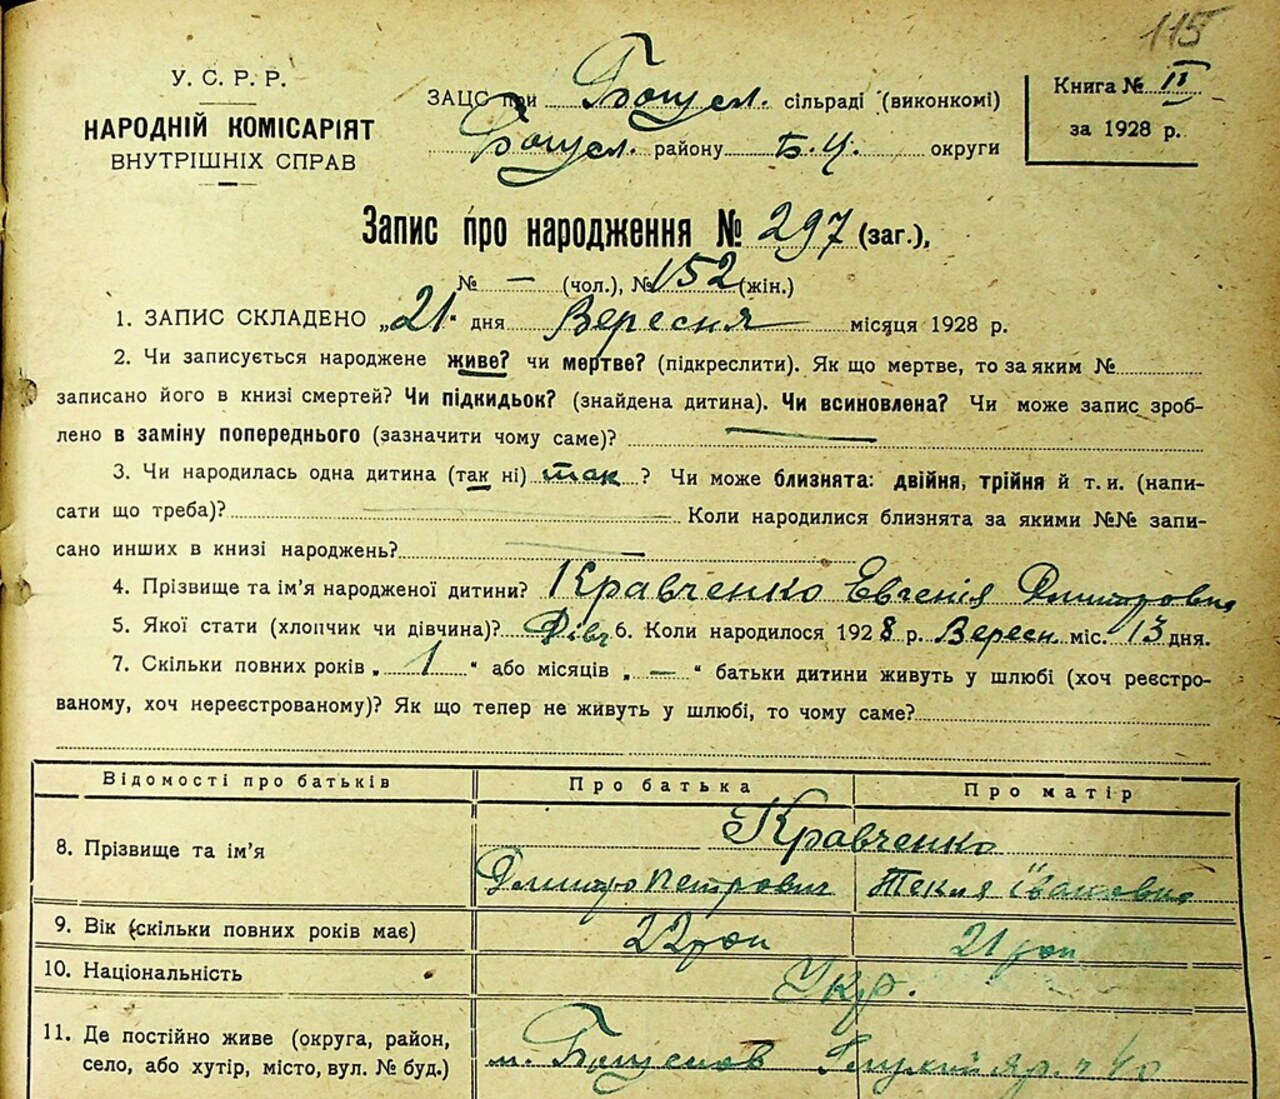 115
У. С. Р. Р.
НАРОДНІЙ КОМІСАРІЯТ
ВНУТРІШНІХ СПРАВ
ЗАЦС при Богусл. сільраді (виконкомі)
Богусл. району Б.Ц. округи
Книга № II
за 1928 р.
Запис про народження № 297 (заг.),
№ — (чол.), № 152 (жін.)
1. ЗАПИС СКЛАДЕНО „21" дня Вересня місяця 1928 р.
2. Чи записується народжене живе? чи мертве? (підкреслити). Як що мертве, то за яким №
записано його в книзі смертей? Чи підкидьок? (знайдена дитина). Чи всиновлена? Чи може запис зроб-
лено в заміну попереднього (зазначити чому саме)? —
3. Чи народилась одна дитина (так ні) так ? Чи може близнята: двійня, трійня й т. и. (напи-
сати що треба)? — Коли народилися близнята за якими №№ запи-
сано инших в книзі народжень? —
4. Прізвище та ім'я народженої дитини? Кравченко Евгенія Дмитровна
5. Якої стати (хлопчик чи дівчина)? Дівч 6. Коли народилося 1928 р. Вересн. міс. 13 дня.
7. Скільки повних років „ 1 " або місяців „ — " батьки дитини живуть у шлюбі (хоч реєстро-
ваному, хоч нереєстрованому)? Як що тепер не живуть у шлюбі, то чому саме?
Відомості про батьків Про батька Про матір
8. Прізвище та ім'я Кравченко
Дмитро Петрович Текля Івановна
9. Вік (скільки повних років має) 22 рок 21 рок
10. Національність Укр.
11. Де постійно живе (округа, район,
село, або хутір, місто, вул. № буд.) м. Богуслав яр. ч 40